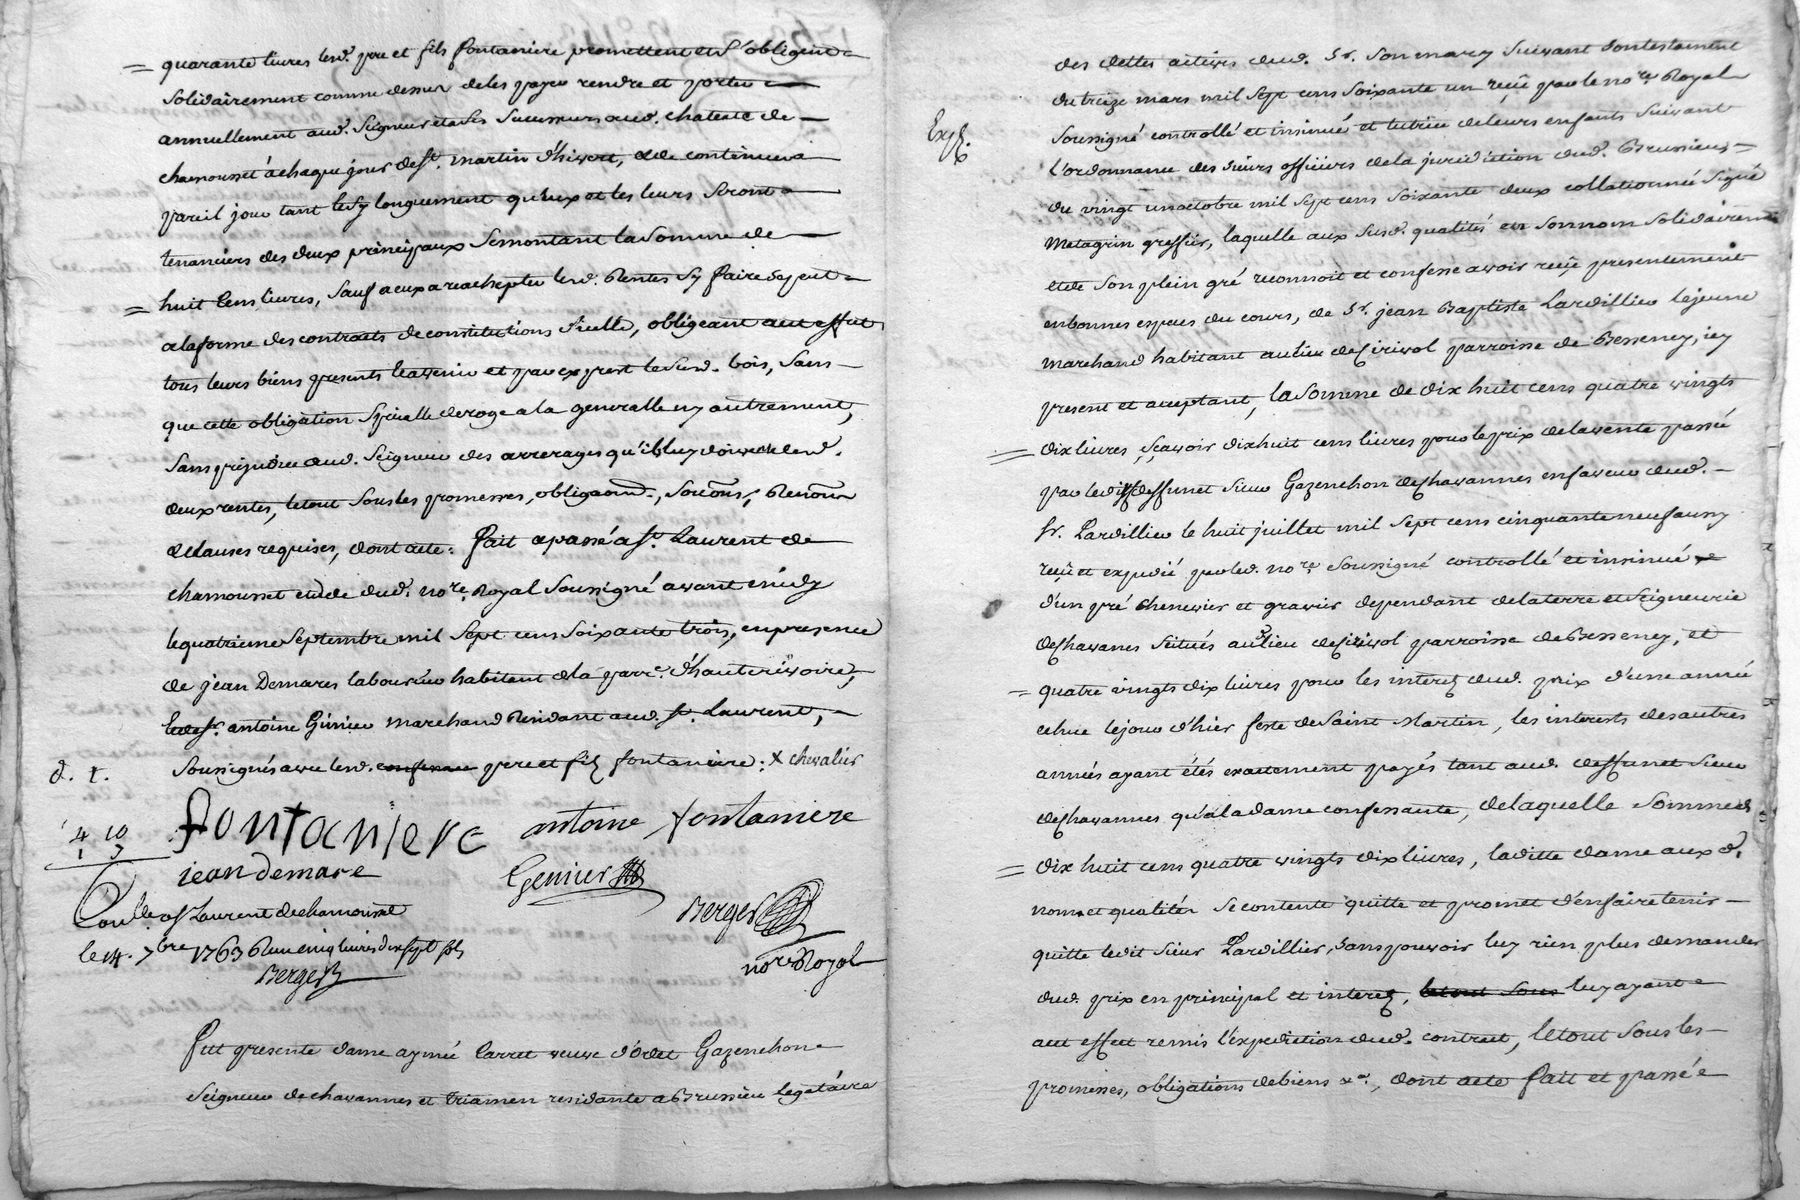 quarante livres lesd. pre et fils fontaniere promettent et s'obligent
solidairement comme dessus de les payer rendre et porter
annuellement aud. Seigneur et a ses successeurs aud. chateau de
chamousset à chaque jour de st. martin d'hivert, et de continuer a
pareil jour tant et sy longuement qu'eux et les leurs seront
tenanciers des deux principaux se montant la somme de
huit cens livres, sauf a eux a reachepter lesd. Rentes sy faire se peut
a la forme des contrats de constitutions d'icelle, obligeant aud effet
tous leurs biens presents et avenir et par exprest le susd. bois, sans
que cette obligation speciale deroge a la generalle ny autrement,
sans prejudice aud. Seigneur des arrerages qu'ils luy doivent desd.
deux rentes, le tout sous les promesses, obligaons., soumons, Renons
et clauses requises, dont acte: fait et passé a st. Laurent de
chamousset etude dud. nore. Royal soussigné avant midy
le quatrieme septembre mil sept cens soixante trois, en presence
de jean Demares laboureur habitant de la parre. d'hauterivoire,
et de sr. antoine Ginier marchand Residant aud. st. Laurent,
soussignés avec lesd. pere et fils fontaniere: x chevalier
d. r.
fontaniere antoine fontaniere
4 10
1 7
jean demare Genier
Conlle. a st Laurent de chamousset Berger
le 14. 7bre 1763 Reçu cinq livres dix sept sols nore. Royal
Berger
Fut presente dame aymée Carret veuve d'odet Gazenchon
Seigneur de chavannes et triamen residante a Brussieu legataire
des dettes actives dud. sr. son mary suivant son testament
du treize mars mil sept cens soixante un reçu par le nore. Royal
Exp.
soussigné controllé et insinué et tutrice de leurs enfants suivant
l'ordonnance des sieurs officiers de la juridiction dud. Brussieux
du vingt un octobre mil sept cens soixante deux collationné signé
Metagrin greffier, laquelle aux susd. qualités et en son nom solidairement
et de son plein gré reconnoit et confesse avoir reçu presentement
en bonnes especes du cours, de sr. jean Baptiste Lardillier le jeune
marchand habitant au lieu de Cirivol parroisse de Bessenay, icy
present et acceptant, la somme de dix huit cens quatre vingts
dix livres, sçavoir dix huit cens livres pour le prix de la vente passé
par ledit deffunct sieur Gazenchon de chavannes en faveur dud.
sr. Lardillier le huit juillet mil sept cens cinquante neuf aussy
reçu et expedié par led. nore. soussigné controllé et insinué
d'un pré chenevier et gravier dependant de la terre et seigneurie
de chavanes scitués aud. lieu de Cirivol parroisse de Bessenay, et
quatre vingts dix livres pour les interets dud. prix d'une année
echue le jour d'hier feste de saint Martin, les interests des autres
années ayant étés exactement payés tant aud. deffunct sieur
de chavannes qu'a la dame confessante, de laquelle somme de
dix huit cens quatre vingts dix livres, laditte dame aux d.
noms et qualités se contente quitte et promet d'en faire tenir
quitte ledit sieur Lardillier, sans pouvoir luy rien plus demander
dud. prix en principal et interets, luy ayant
aud effect remis l'expedition dud. contract, le tout sous les
promesses, obligations de biens &a., dont acte fait et passé